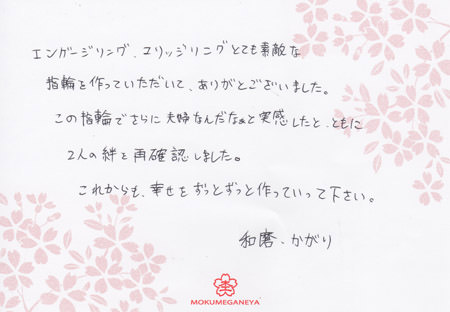 エンゲージリング、マリッジリングとても素敵な
指輪を作っていただいて、ありがとございました。
この指輪でさらに夫婦なんだなぁと実感したと、ともに
2人の絆を再確認しました。
これからも、幸せをずっとずっと作っていって下さい。
和磨、かがり
MOKUMEGANEYA